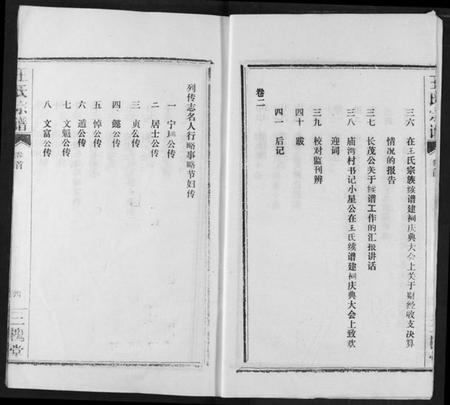 三六 在王氏宗族续谱建祠庆典大会上关于财经收支决算
情况的报告
三七 长茂公关于续谱工作的汇报讲话
三八 庙湾村书记小星公在王氏续谱建祠庆典大会上致欢
迎词
三九 校对监刊辨
四十 跋
四一 后记
卷二
列传志名人行略事略节妇传
一 宁 公传
二 居士公传
三 贞么公传
四 懿公传
五 悼公传
六 遁公传
七 文魁公传
八 文富公传
王氏宗谱
卷首
四
三槐堂